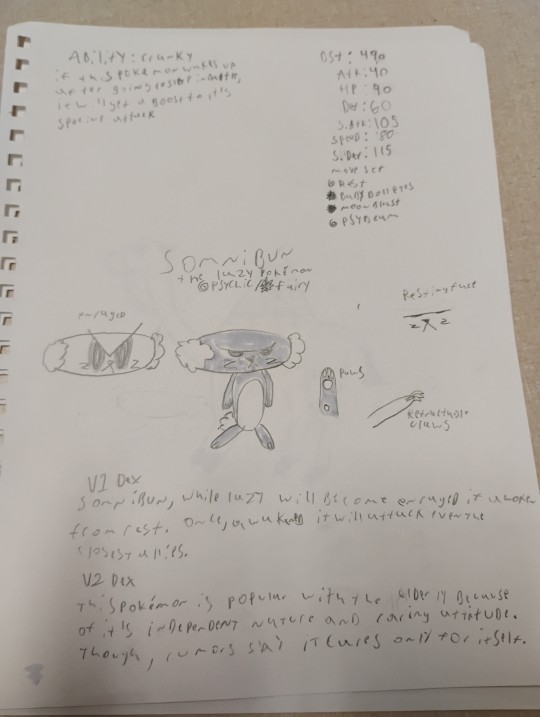 Ability: Crunky
if this pokémon wakes up
after going to sleep in battle,
it will get a Boost to it's
special attack
BST: 490
Atk: 40
HP: 90
Def: 60
S.Atk: 105
Speed: 80
S.Def: 115
move set
Rest
Baby Doll eyes
moonBlast
PSYBeam
SOMNIBUN
the lazy pokémon
PSYCHIC/Fairy
enraged
Resting face
z z
paws
Retractable
claws
V1 Dex
SomniBun, while lazy will Become enraged if awoken
from rest. Once, awakened it will attack even the
closest allies.
V2 Dex
This pokémon is popular with the elderly Because
of it's independent nature and caring attitude.
Though, rumors say it cares only for itself.